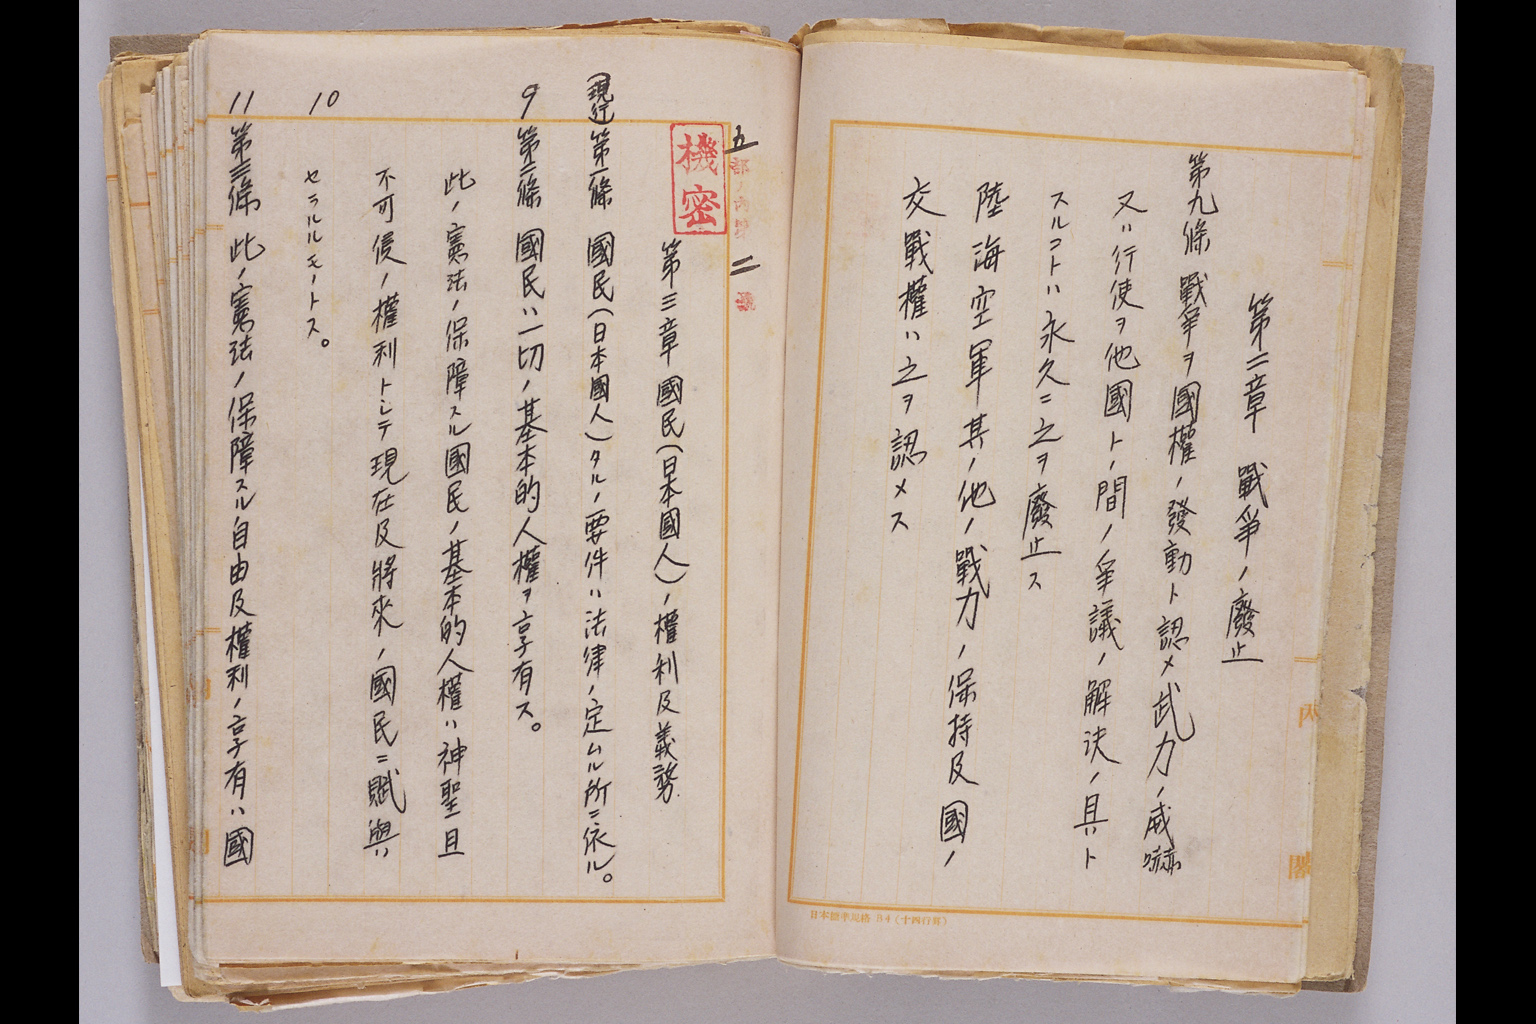 第二章　戰爭ノ廢止
第九條　戰爭ヲ國權ノ發動ト認メ武力ノ威嚇
又ハ行使ヲ他國トノ間ノ爭議ノ解決ノ具ト
スルコトハ永久ニ之ヲ廢止ス
陸海空軍其ノ他ノ戰力ノ保持及國ノ
交戰權ハ之ヲ認メス
內閣
日本標準規格B4(十四行罫)
五部ノ內第二號
機密
第三章　國民(日本國人)ノ權利及義務
(現行)第一條　國民(日本國人)タルノ要件ハ法律ノ定ムル所ニ依ル。
9　第二條　國民ハ一切ノ基本的人權ヲ享有ス。
此ノ憲法ノ保障スル國民ノ基本的人權ハ神聖且
不可侵ノ權利トシテ現在及將來ノ國民ニ賦與
10　セラルルモノトス。
11　第三條　此ノ憲法ノ保障スル自由及權利ノ享有ハ國